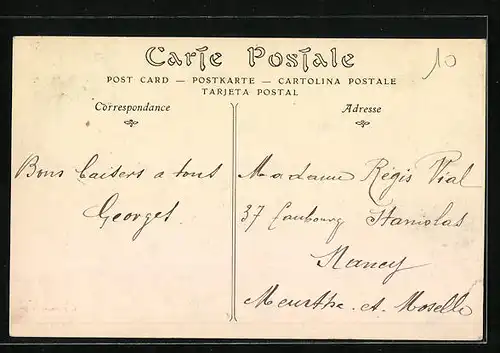 Carte Postale
POST CARD — POSTKARTE — CARTOLINA POSTALE
TARJETA POSTAL
10
Correspondance
Adresse
Bons baisers a tous
Georges
Madame Régis Vial
37 faubourg Stanislas
Nancy
Meurthe et Moselle